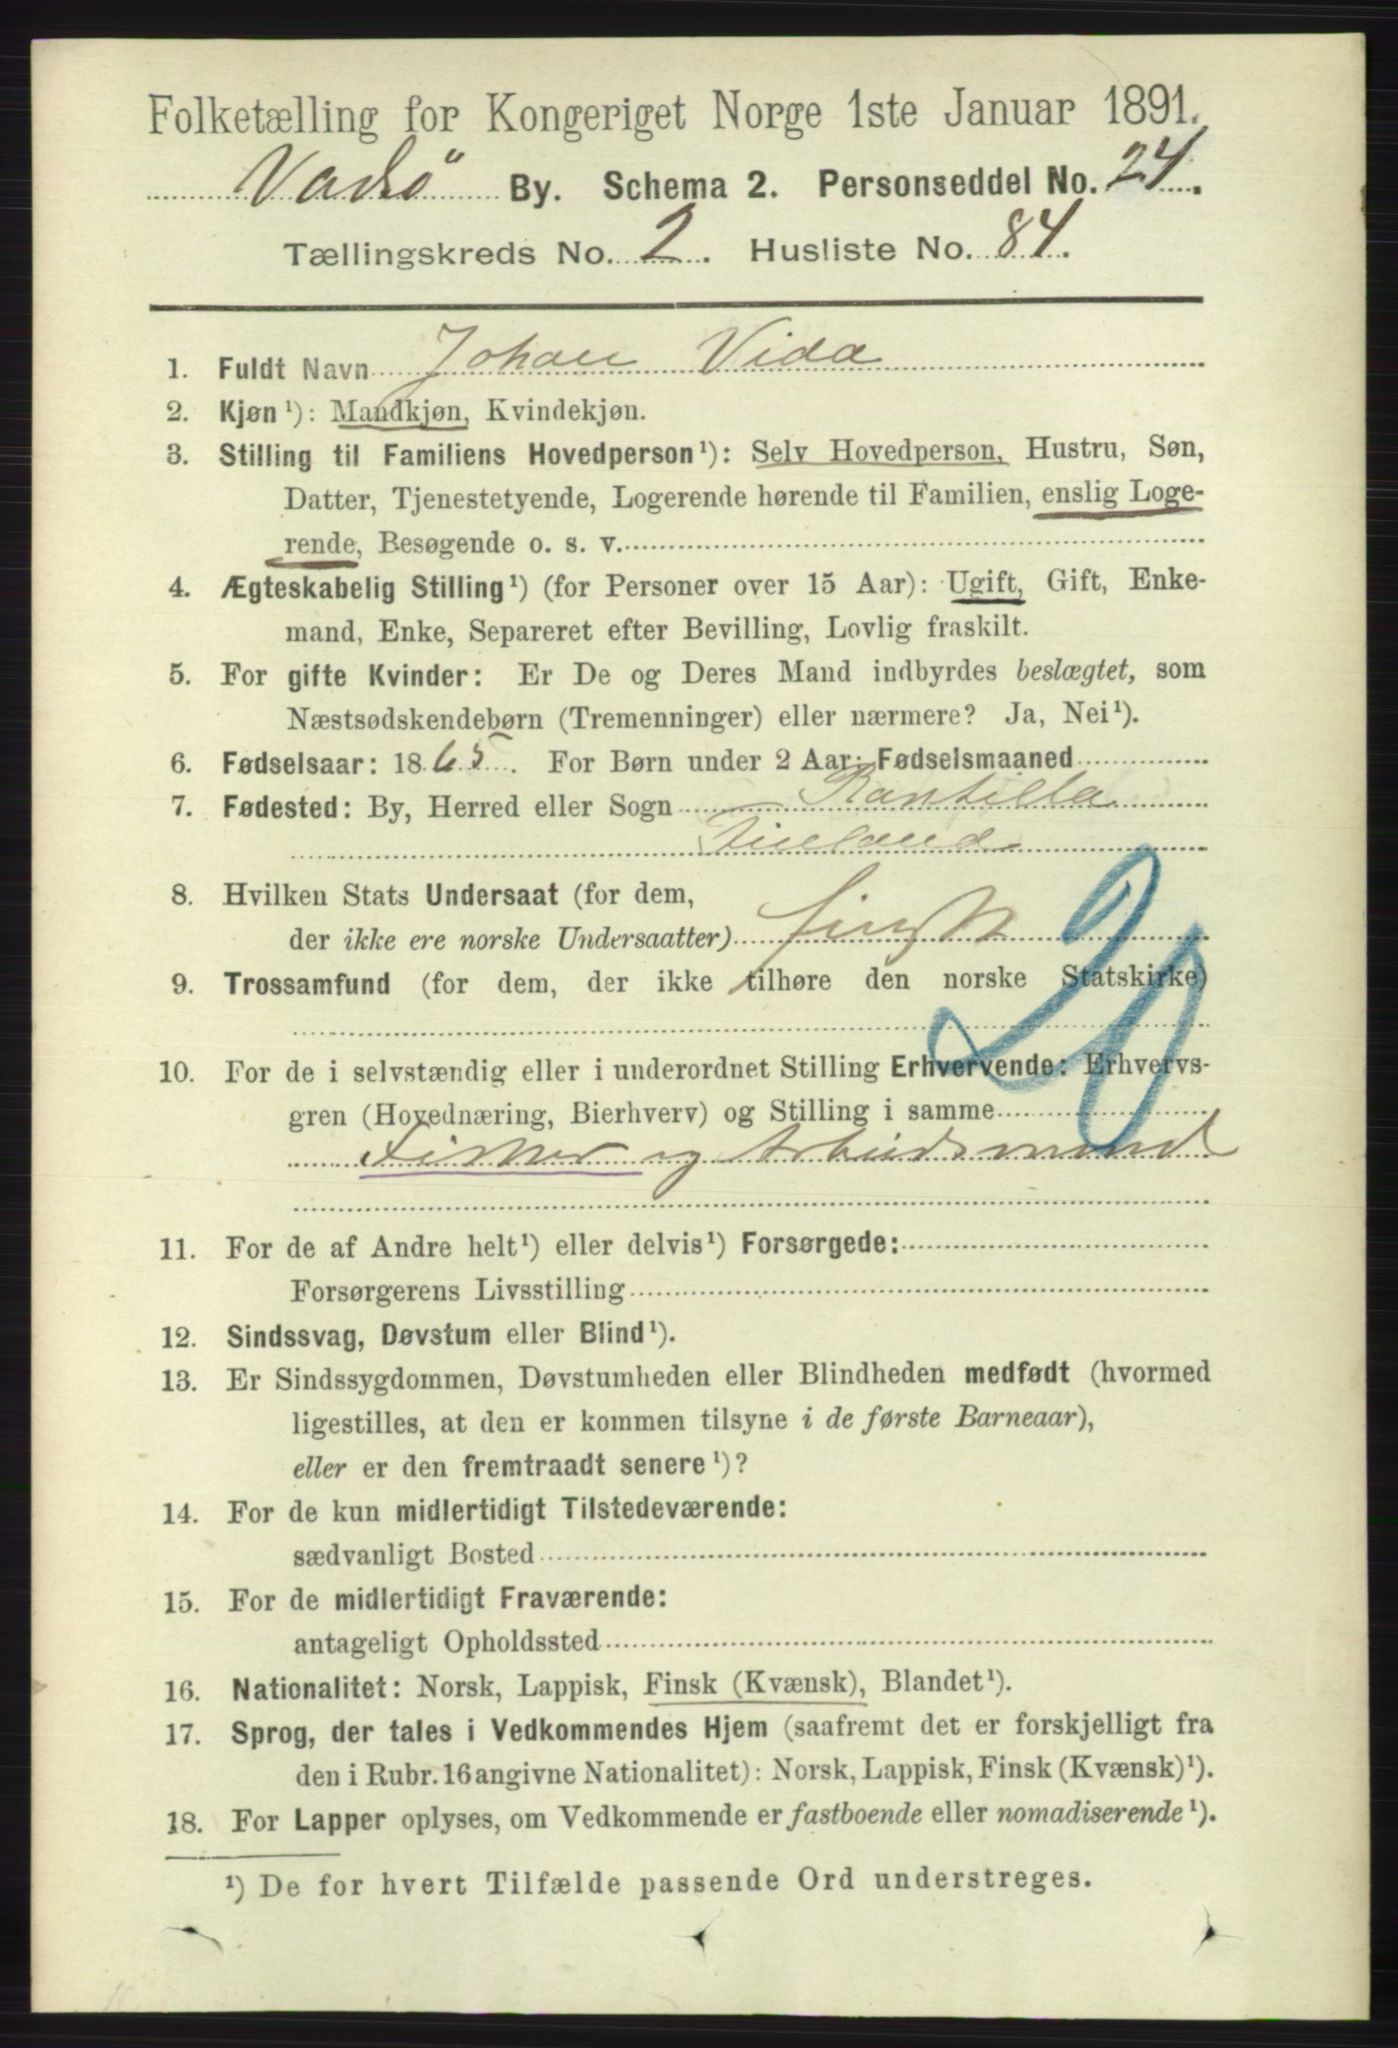 Folketælling for Kongeriget Norge 1ste Januar 1891.
Vadsö By. Schema 2. Personseddel No. 24.
Tællingskreds No. 2. Husliste No. 84.
1. Fuldt Navn Johan Vida
2. Kjøn¹): Mandkjøn, Kvindekjøn.
3. Stilling til Familiens Hovedperson¹): Selv Hovedperson, Hustru, Søn,
Datter, Tjenestetyende, Logerende hørende til Familien, enslig Loge-
rende, Besøgende o. s. v.
4. Ægteskabelig Stilling¹) (for Personer over 15 Aar): Ugift, Gift, Enke-
mand, Enke, Separeret efter Bevilling, Lovlig fraskilt.
5. For gifte Kvinder: Er De og Deres Mand indbyrdes beslægtet, som
Næstsødskendebørn (Tremenninger) eller nærmere? Ja, Nei¹).
6. Fødselsaar: 1865. For Børn under 2 Aar: Fødselsmaaned
7. Fødested: By, Herred eller Sogn Rantilla
Finland
8. Hvilken Stats Undersaat (for dem,
der ikke ere norske Undersaatter) finsk
20
9. Trossamfund (for dem, der ikke tilhøre den norske Statskirke)
10. For de i selvstændig eller i underordnet Stilling Erhvervende: Erhvervs-
gren (Hovednæring, Bierhverv) og Stilling i samme
Fisker og Arbeidsmand
11. For de af Andre helt¹) eller delvis¹) Forsørgede:
Forsørgerens Livsstilling
12. Sindssvag, Døvstum eller Blind¹).
13. Er Sindssygdommen, Døvstumheden eller Blindheden medfødt (hvormed
ligestilles, at den er kommen tilsyne i de første Barneaar),
eller er den fremtraadt senere¹)?
14. For de kun midlertidigt Tilstedeværende:
sædvanligt Bosted
15. For de midlertidigt Fraværende:
antageligt Opholdssted
16. Nationalitet: Norsk, Lappisk, Finsk (Kvænsk), Blandet¹).
17. Sprog, der tales i Vedkommendes Hjem (saafremt det er forskjelligt fra
den i Rubr. 16 angivne Nationalitet): Norsk, Lappisk, Finsk (Kvænsk)¹).
18. For Lapper oplyses, om Vedkommende er fastboende eller nomadiserende¹).
¹) De for hvert Tilfælde passende Ord understreges.